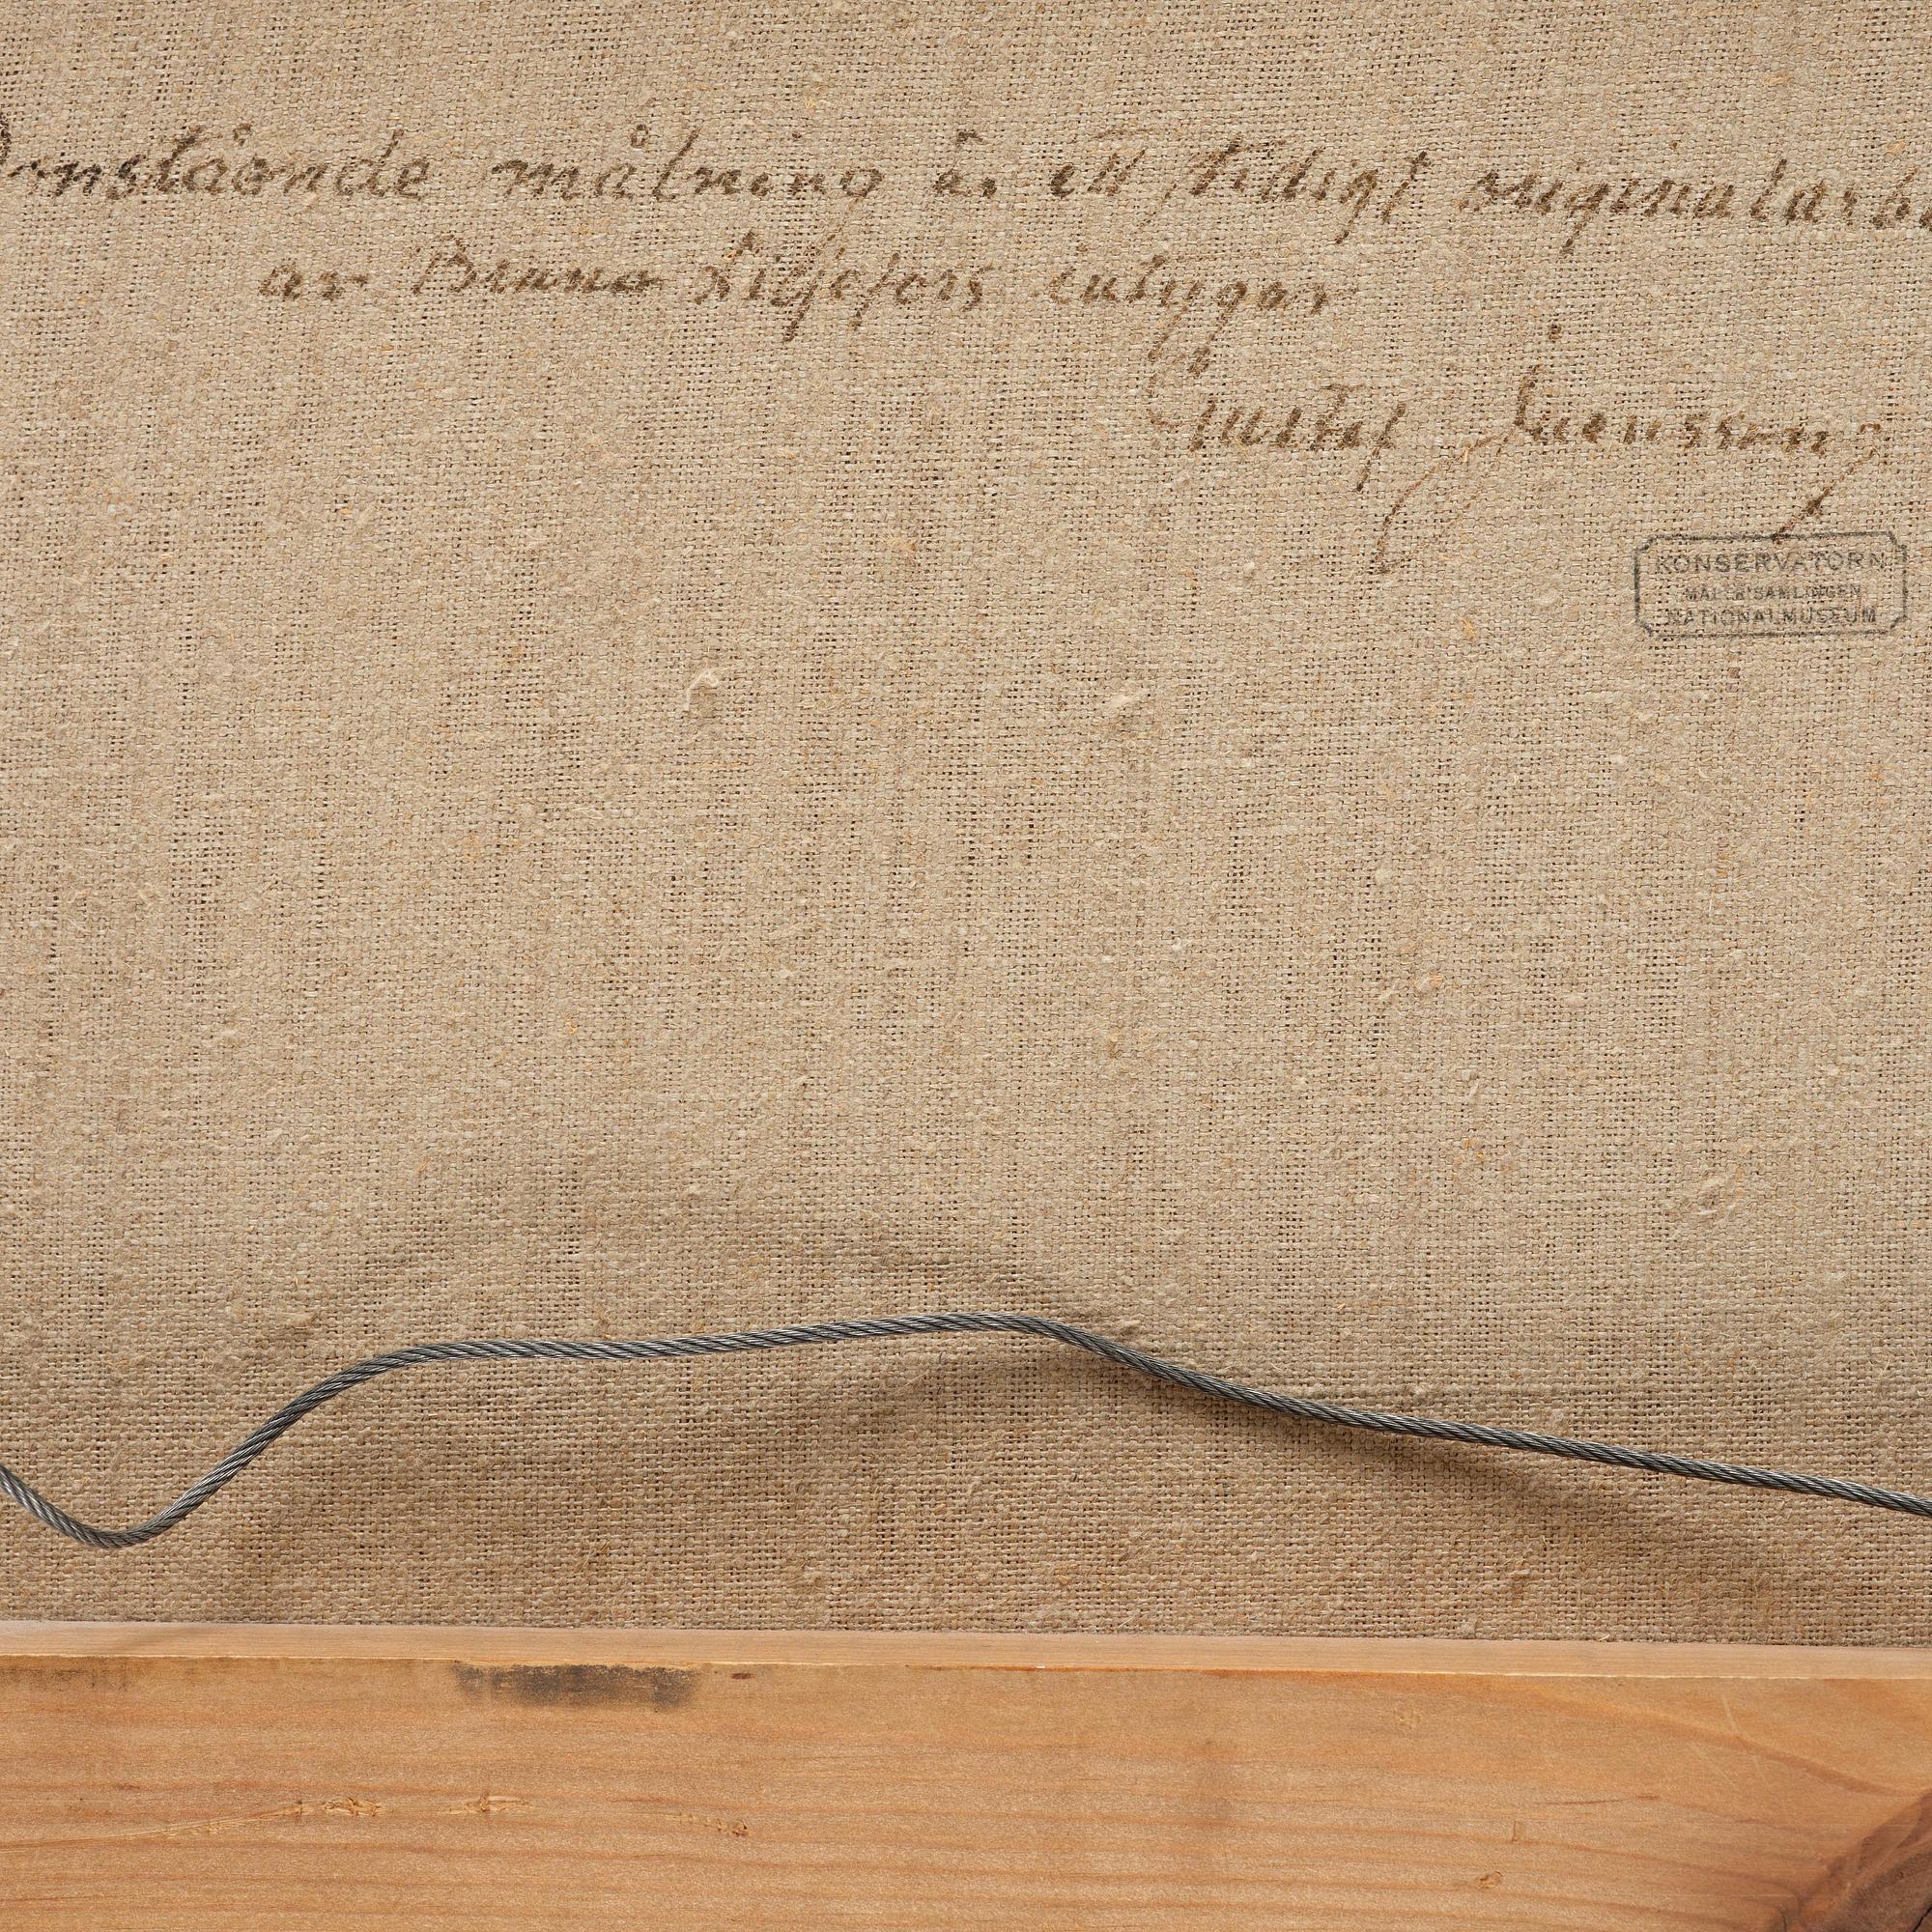 Omstående målning är ett tidigt originalarbe
av Bruno Liljefors intygar
Gustaf Svensson
KONSERVATORN
MÅLERISAMLINGEN
NATIONALMUSEUM